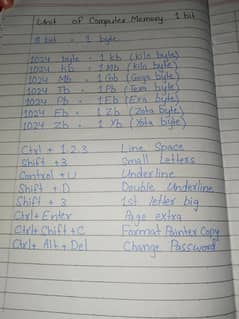 Unit of Computer Memory 1 bit
8 bit = 1 byte
1024 byte = 1 kb (kilo byte)
1024 kb = 1 Mb (Mega byte)
1024 Mb = 1 Gb (Gega byte)
1024 Tb = 1 Pb (Tera byte)
1024 Pb = 1 Eb (Exa byte)
1024 Eb = 1 Zb (Zeta byte)
1024 Zb = 1 Yb (Yota byte)
Ctrl + 1 2 3 Line Space
Shift + 3 Small Letters
Control + U Underline
Shift + D Double Underline
Shift + 3 1st letter big
Ctrl + Enter Page extra
Ctrl + Shift + C Format Painter Copy
Ctrl + Alt + Del Change Password